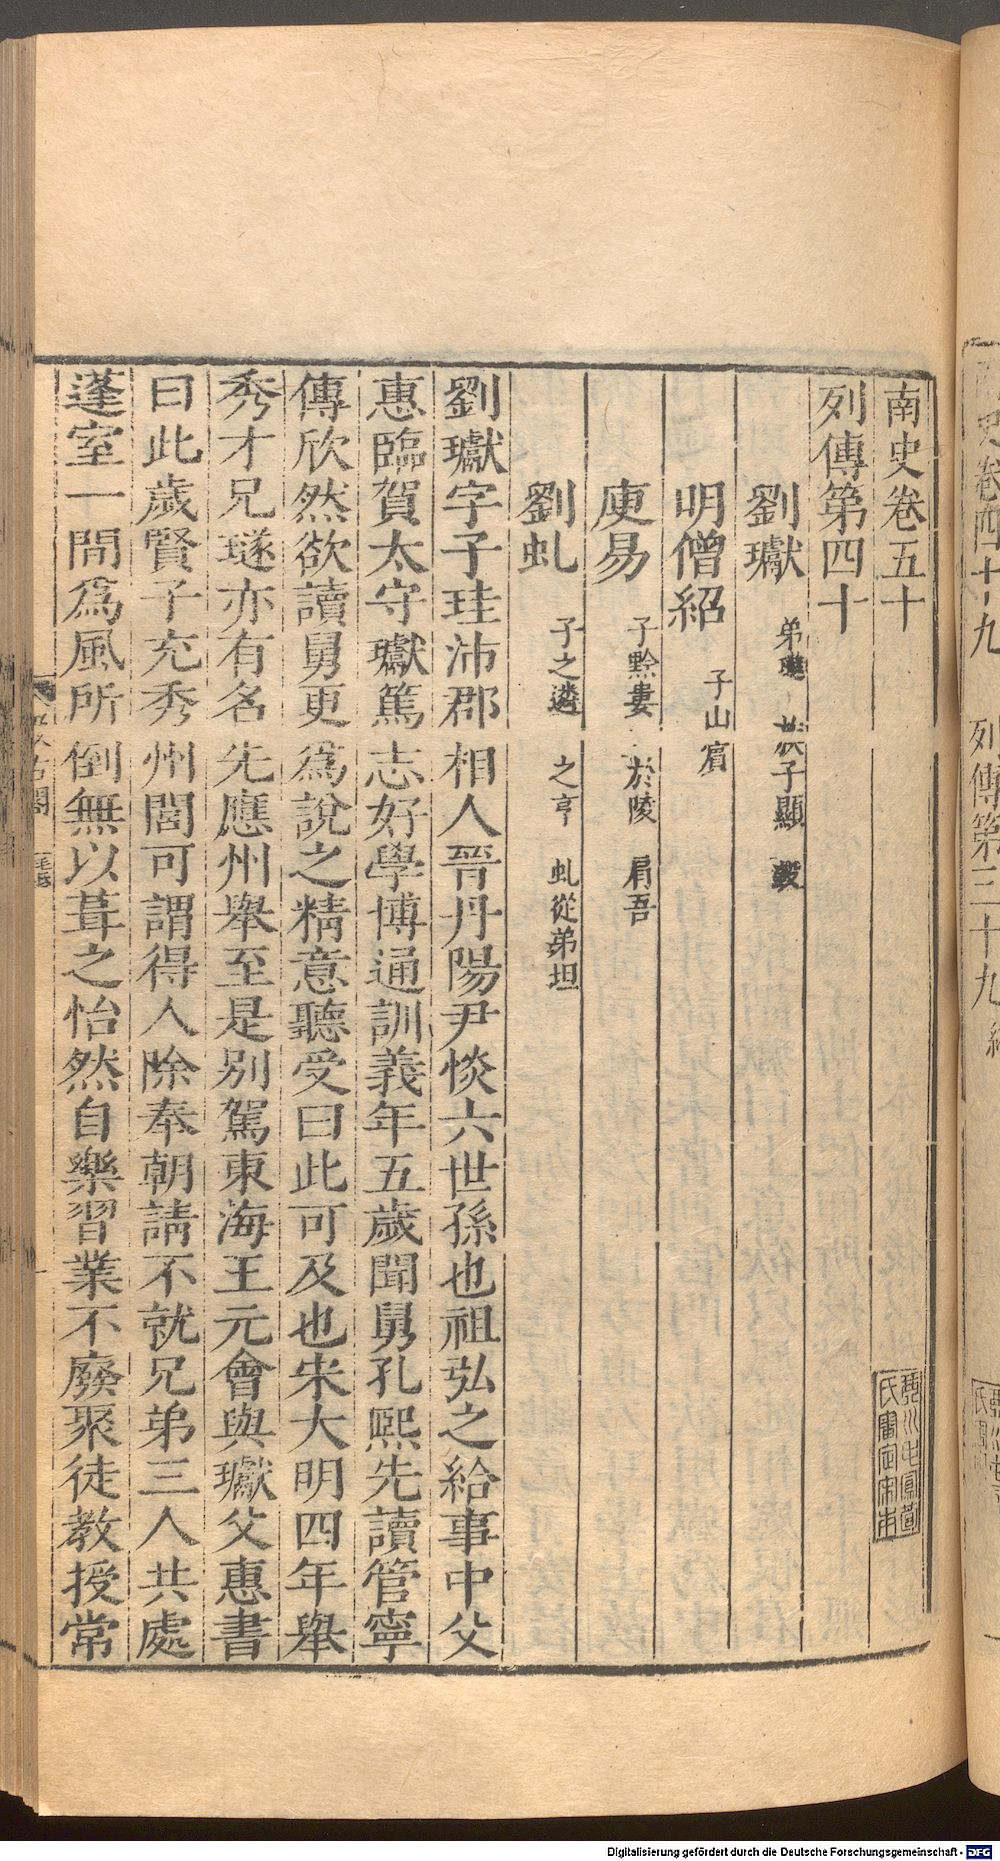 南史卷五十
列傳第四十
劉瓛 弟璡 族子顯 瑴
明僧紹 子山賓
庾易 子黔婁 於陵 肩吾
劉虬 子之遴 之亨 虬從弟坦
劉瓛字子珪沛郡相人晉丹陽尹惔六世孫也祖弘之給事中父
惠臨賀太守瓛篤志好學博通訓義年五歲聞舅孔熙先讀管寧
傳欣然欲讀舅更爲說之精意聽受曰此可及也宋大明四年舉
秀才兄璲亦有名先應州舉至是別駕東海王元會與瓛父惠書
曰此歲賢子充秀州閭可謂得人除奉朝請不就兄弟三人共處
蓬室一間爲風所倒無以葺之怡然自樂習業不廢聚徒教授常
汲古閣
毛氏
琴川毛鳳苞
氏審定宋本
史卷四十九 列傳第三十九 終
Digitalisierung gefördert durch die Deutsche Forschungsgemeinschaft - DFG